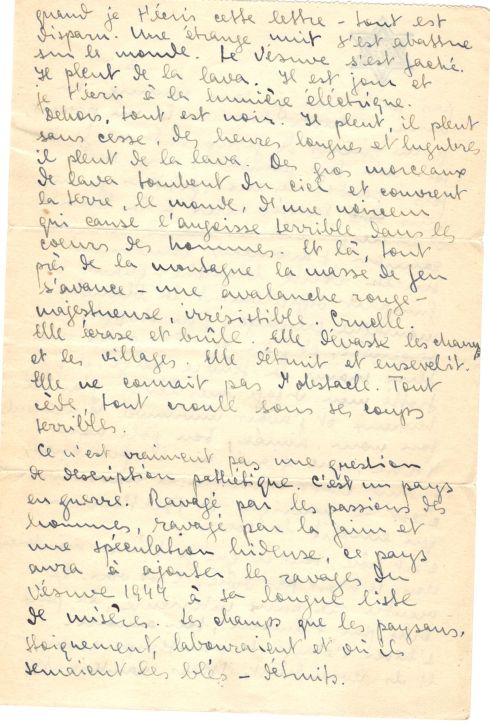 quand je t'écris cette lettre - tout est
disparu. Une étrange nuit s'est abattue
sur le monde. Le Vésuve s'est faché.
Il pleut de la lava. Il est jour et
je t'écris à la lumière éléctrique.
Dehors, tout est noir. Il pleut, il pleut
sans cesse, des heures longues et lugubres
il pleut de la lava. Des gros morceaux
de lava tombent du ciel et couvrent
la terre, le monde, d'une noirceur
qui cause l'angoisse terrible dans les
coeurs des hommes. Et là, tout
près de la montagne la masse de feu
s'avance - une avalanche rouge -
majestueuse, irrésistible. Cruelle.
Elle écrase et brûle. Elle dévaste les champs
et les villages. Elle détruit et ensevelit.
Elle ne connait pas l'obstacle. Tout
cède, tout croule sous ses coups
terribles.
Ce n'est vraiment pas une question
de description pathétique. C'est un pays
en guerre. Ravagé par les passions des
hommes, ravagé par la faim et
une spéculation hideuse, ce pays
aura à ajouter les ravages du
Vésuve 1944 à sa longue liste
de misères. Les champs que les paysans,
stoiquement, labouraient et où ils
semaient les blés - détruits.